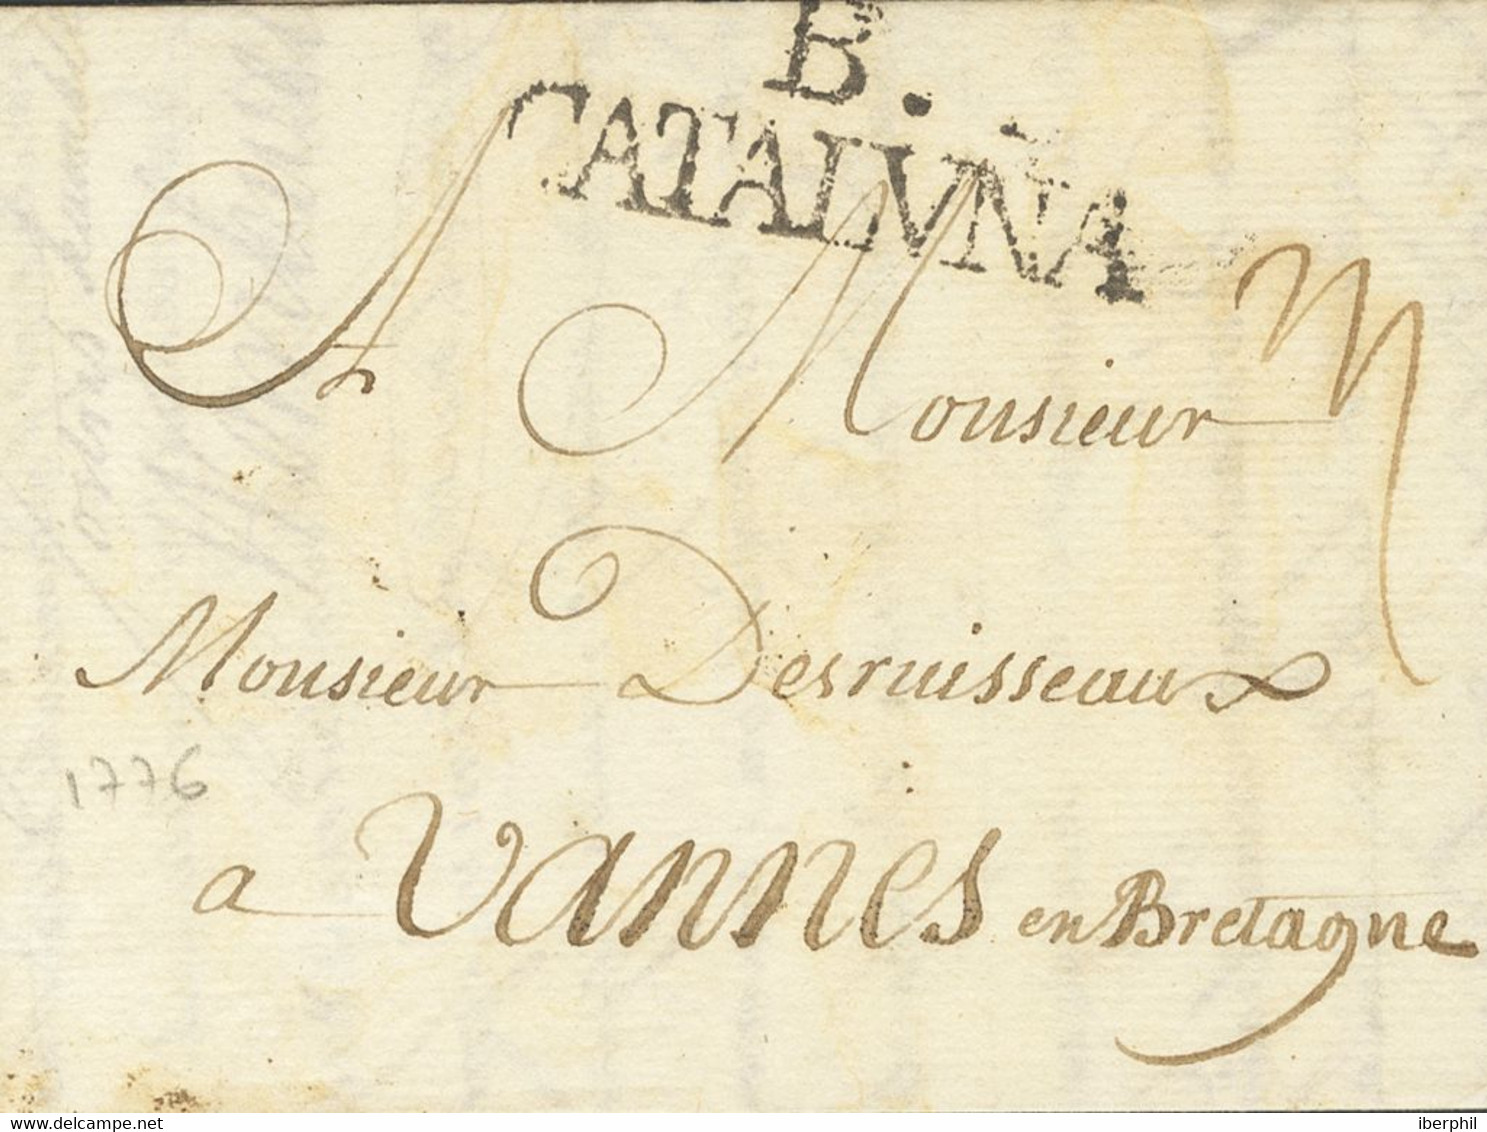 B.
CATALVÑA
A Monsieur
Monsieur Desruisseaux
1776
a Vannes en Bretagne
delcampe.net
iberphil